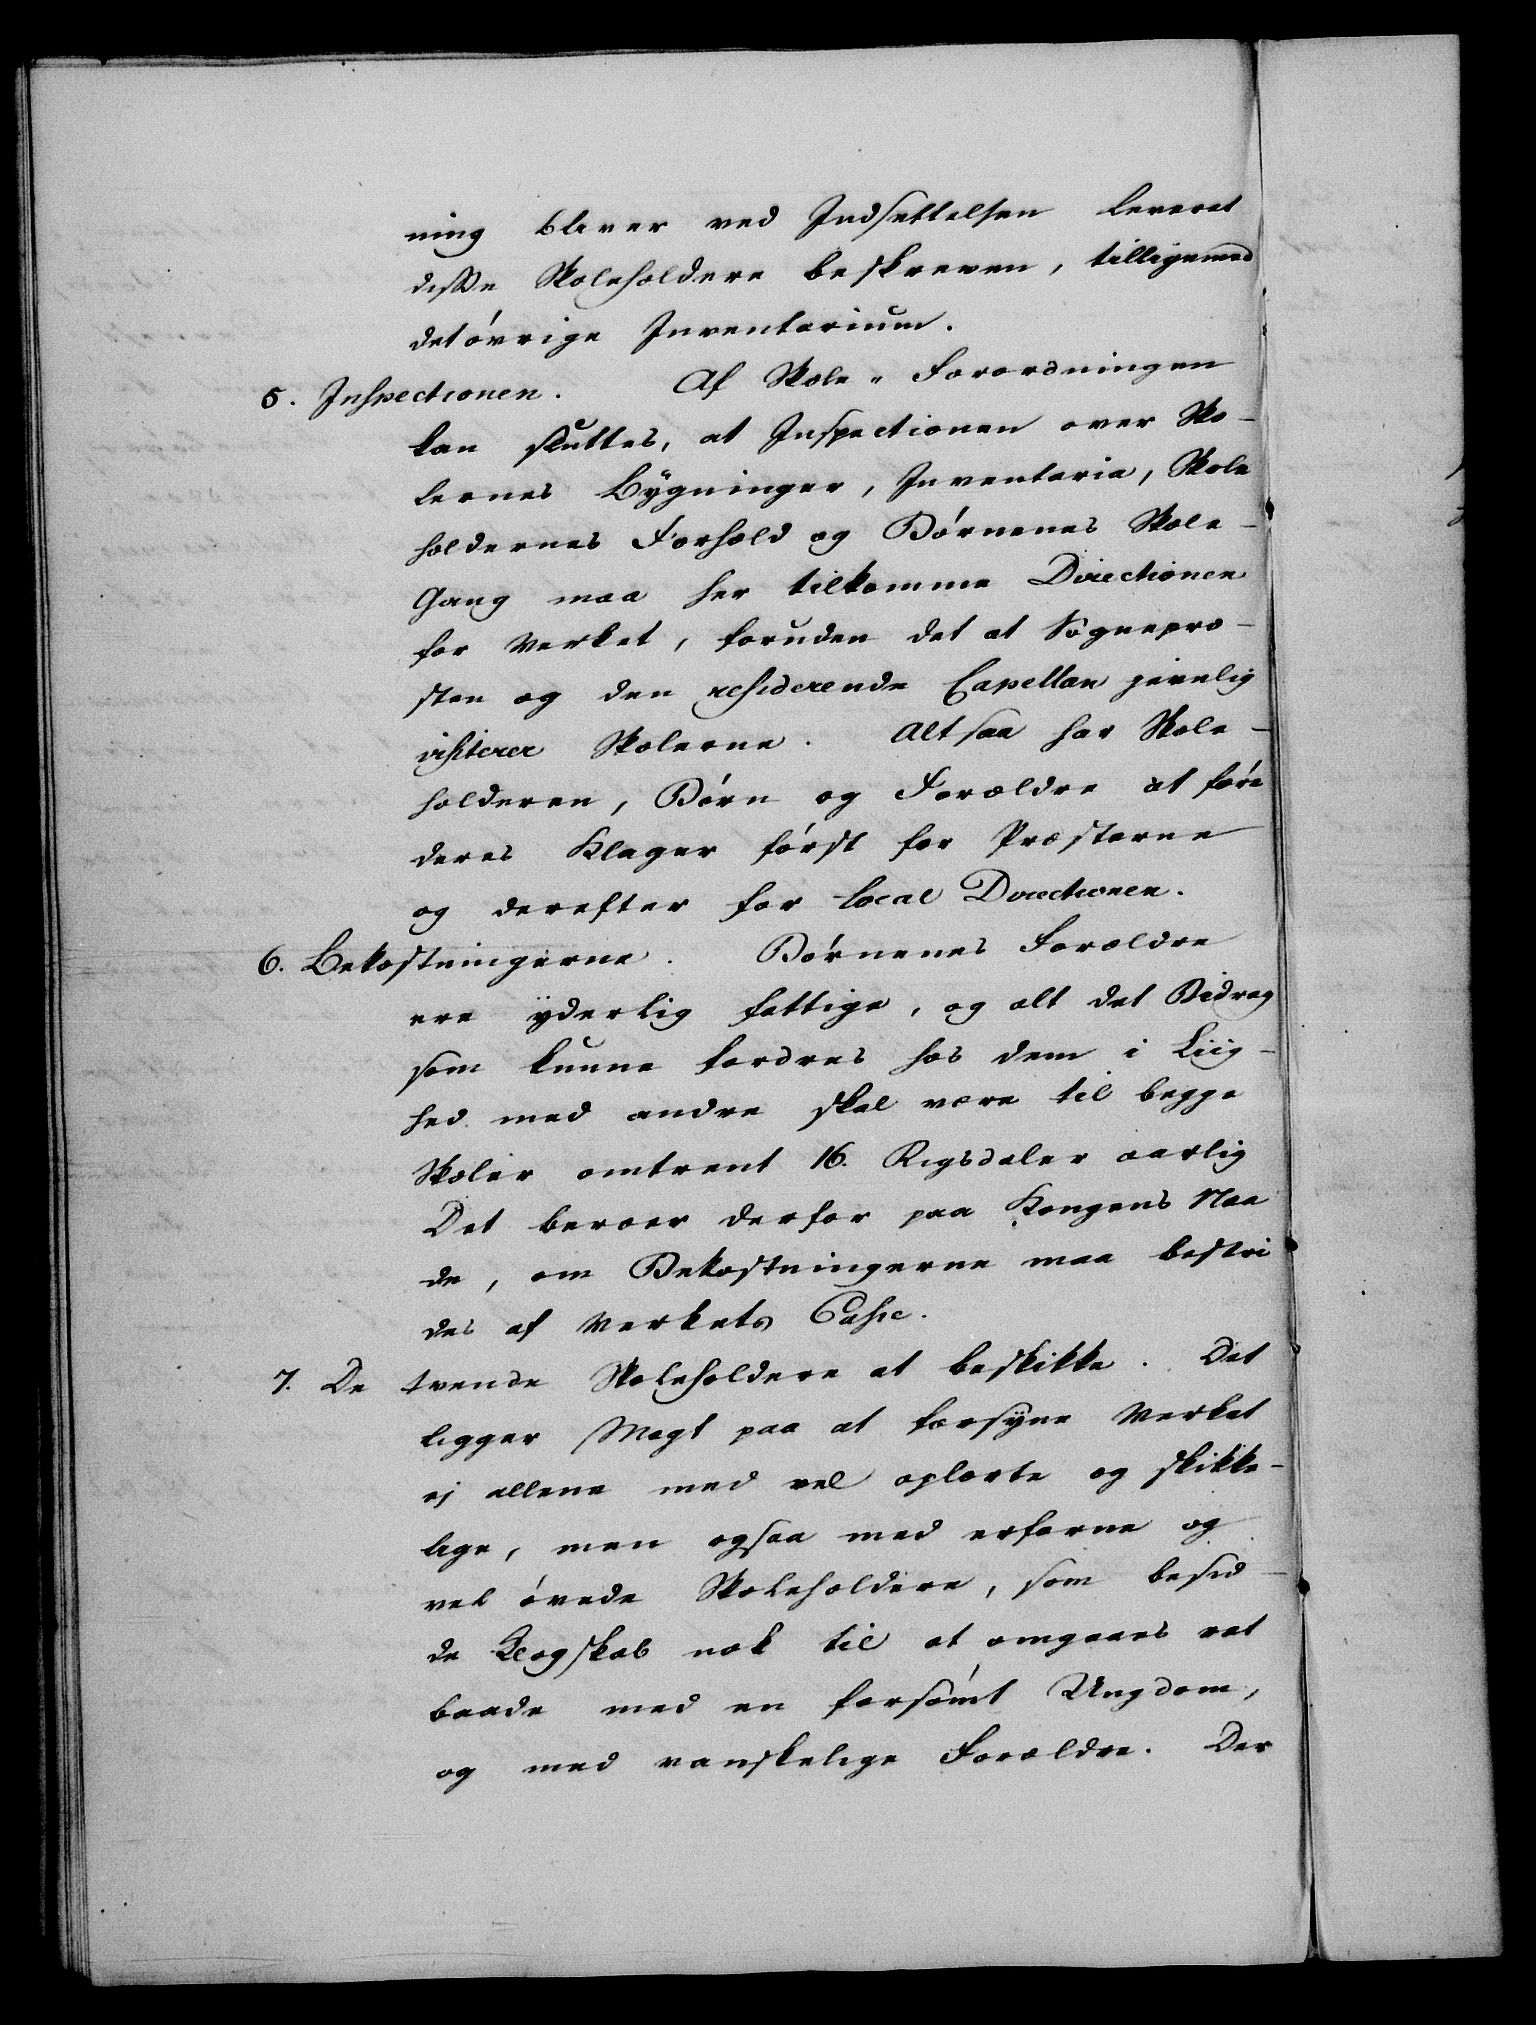 ning bliver ved Indsettelsen leveret
disse Skoleholdere beskreven, tilligemed
det øvrige Inventarium.
5. Inspectionen. Af Skole-Forordningen
kan sluttes, at Inspectionen over Sko-
lernes Bygninger, Inventaria, Skole
holdernes Forhold og Børnenes Skole-
Gang maa her tilkomme Directionen
for Verket, foruden det at Sognepræ-
sten og den residerende Capellan jevnlig
visiterer Skolerne. Altsaa har Skole-
holderen, Børn og Forældre at føre
deres Klager først for Præsterne
og derefter for local Directionen.
6. Bekostningerne. Børnenes Forældre
ere yderlig fattige, og alt det Bidrag
som kunne fordres hos dem i Liig-
hed med andre skal være til begge
Skoler omtrent 16. Rigsdaler aarlig
Det beroer derfor paa Kongens Naa
de, om Bekostningerne maa bestri
des af Verkets Casse.
7. De tvende Skoleholdere at beskikke. Det
ligger Magt paa at forsyne Verket
ej allene med vel oplærte og skikke-
lige, men ogsaa med erfarne og
vel øvede Skoleholdere, som besid-
de Klogskab nok til at omgaaes ret
baade med en forsømt Ungdom,
og med vanskelige Forældre. Der